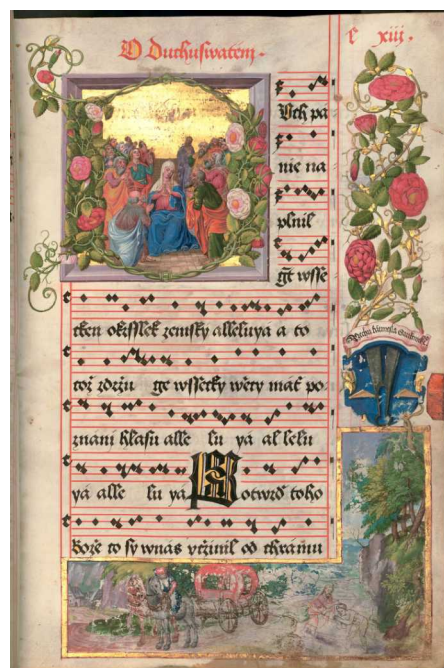 O Duchu swatem.
e xiij.
Vch pa
nie na
plnil
gt wsse
tken okrsslek zemsky alleluya a to
toz zdrzu ge wssetky wety mat po-
znani hlasu alle lu ya al lelu
ya alle lu ya K otwrd toho
Boze to sy wnas vtzinil od chramu